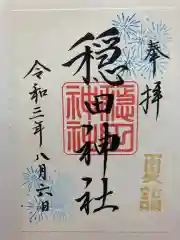 奉拝
穏田神社
夏詣
令和三年八月六日
穏田神社